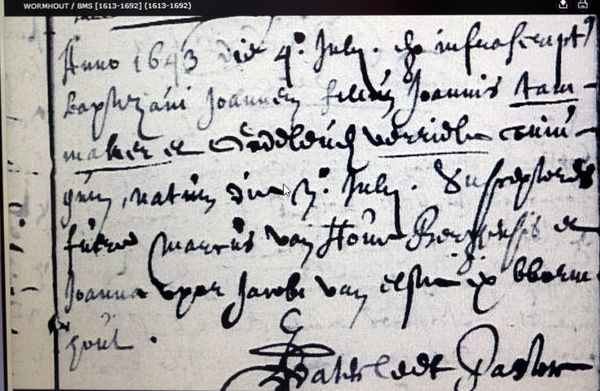 WORMHOUT / BMS [1613-1692] (1613-1692)
Anno 1643 die 4ᵃ July. Ego infrascript9
baptizavi Joannem filium Joannis tam-
maker et verriele coniu-
gum, natum die 3ᵃ July. Susceptores
fuere Marcus van Houve Bergensis et
Joanna uxor Jacobi van ex Worm
hout.
Pastor